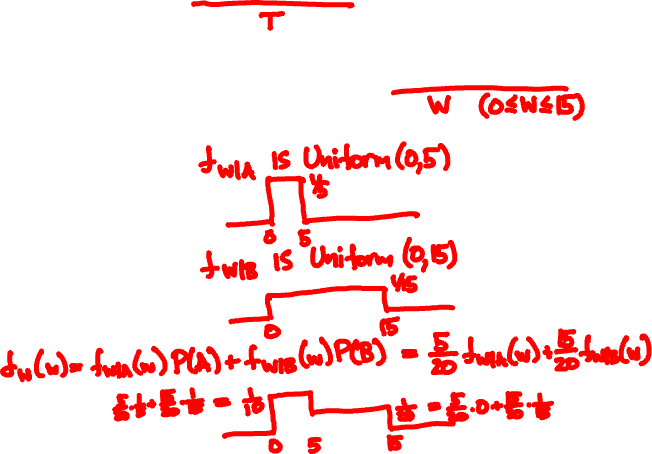 T
W (0≤W≤15)
f_{W|A} is Uniform (0,5)
1/5
0 5
f_{W|B} is Uniform (0,15)
1/15
0 15
f_W(w) = f_{W|A}(w) P(A) + f_{W|B}(w) P(B) = 5/20 f_{W|A}(w) + 15/20 f_{W|B}(w)
5/20 · 1/5 + 15/20 · 1/15 = 1/10 1/20 = 5/20 · 0 + 15/20 · 1/15
0 5 15